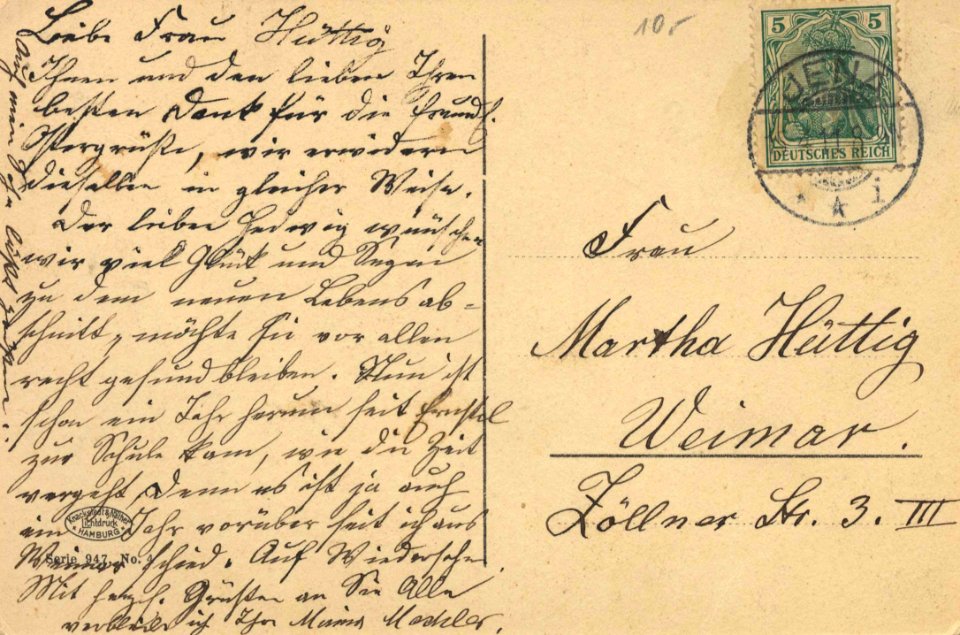 Liebe Frau Hüttig
Ihnen und den lieben Ihren
besten Dank für die freundl.
Ostergrüße, wir erwidern
dieselben in gleicher Weise.
Der lieben Hedwig wünschen
wir viel Glück und Segen
zu dem neuen Lebensab-
schnitt, möchte sie vor allen
recht gesund bleiben. Nun ist
schon ein Jahr herum seit
zur Schule kam, wie die Zeit
vergeht, denn es ist ja auch
ein Jahr vorüber seit ich aus
Weimar schied. Auf Wiedersehn
Mit herzl. Grüßen an Sie Alle
verbleibe ich Ihre
Auf mein
läßt grüßen
Knackstedt & Näther
Lichtdruck
HAMBURG
Serie 947. No.
10.-
5 5
DEUTSCHES REICH
JENA
* * i
Frau
Martha Hüttig
Weimar.
Zöllner Str. 3. III